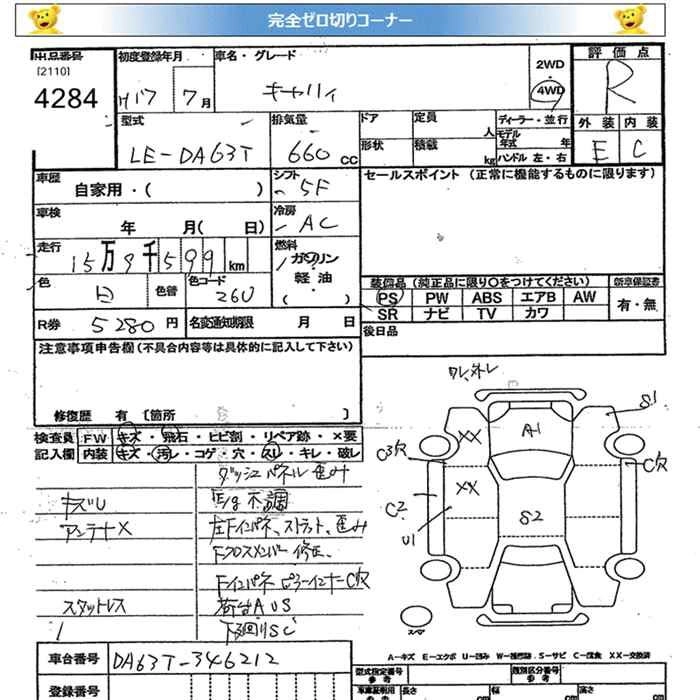 完全ゼロ切りコーナー
出品番号 初度登録年月 車名・グレード 2WD 評価点
[2110]
4284 H17 7月 キャリィ ・ 4WD R
型式 排気量 ドア 定員 人 ディーラー・並行 外装 内装
モデル年式 年
LE-DA63T 660cc 形状 積載 kg ハンドル 左・右 E C
車歴 自家用・( ) シフト 5F セールスポイント (正常に機能するものに限ります)
車検 年 月( 日) 冷房 AC
走行 15万9千599km 燃料 ガソリン
軽油
( )
色 白 色替 色コード 26U 装備品 (純正品に限り○をつけてください) 新車保証書
PS PW ABS エアB AW 有・無
SR ナビ TV カワ
R券 5280円 名変通知期限 月 日 後日品
注意事項申告欄 (不具合内容等は具体的に記入して下さい)
修復歴 有 〔箇所 〕
検査員 FW キズ・飛石・ヒビ割・リペア跡・×要
記入欄 内装 キズ・汚レ・コゲ・穴・スレ・キレ・破レ
ダッシュパネル歪み
キズU E/g不調
アンテナX 左Fインパネ、ストラット、歪み
Fクロスメンバー修正、
Fインパネ ピラーインナーC欠
スタットレス 荷台AUS
下廻りSC
S1
XX A1
C3欠 C欠
XX
C2 S2
U1
スペア
A-キズ E-エクボ U-凹み W-補修跡 S-サビ C-腐食 XX-交換済
車台番号 DA63T-346212
型式指定番号 参考 類別区分番号 参考
登録番号 長さ cm 幅 cm 高さ cm